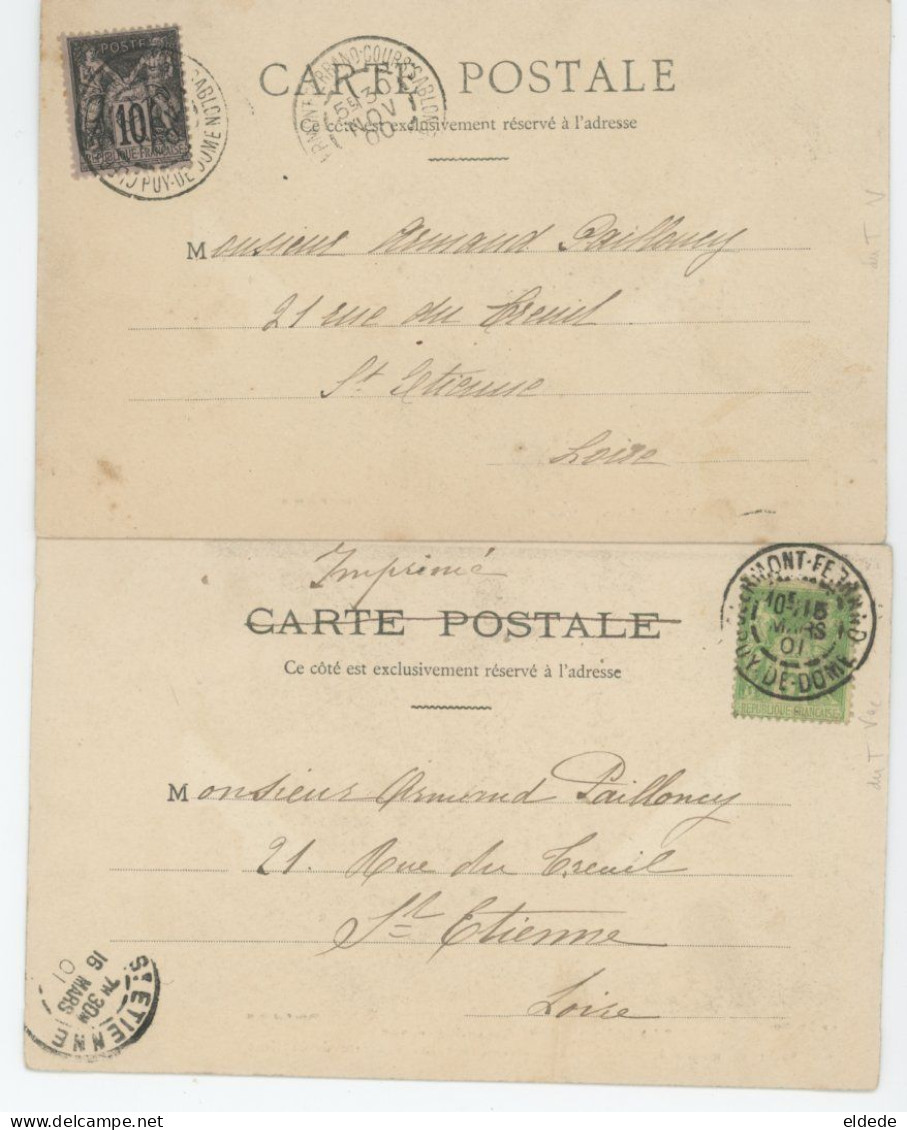 POSTE
10
REPUBLIQUE FRANÇAISE
SABLON
PUY-DE DOME
COURS SABLON
5E 30
NOV
00
CARTE POSTALE
Ce côté est exclusivement réservé à l'adresse
Monsieur Armand Pailloncy
21 rue du Treuil
St Etienne
Loire
du T V
Imprimé
CARTE POSTALE
Ce côté est exclusivement réservé à l'adresse
CLERMONT-FERRAND
10E 15
MARS
01
PUY-DE-DOME
REPUBLIQUE FRANÇAISE
Monsieur Armand Pailloncy
21. Rue du Treuil
St Etienne
Loire
ST ETIENNE
7M 30M
16 MARS
01
eldede